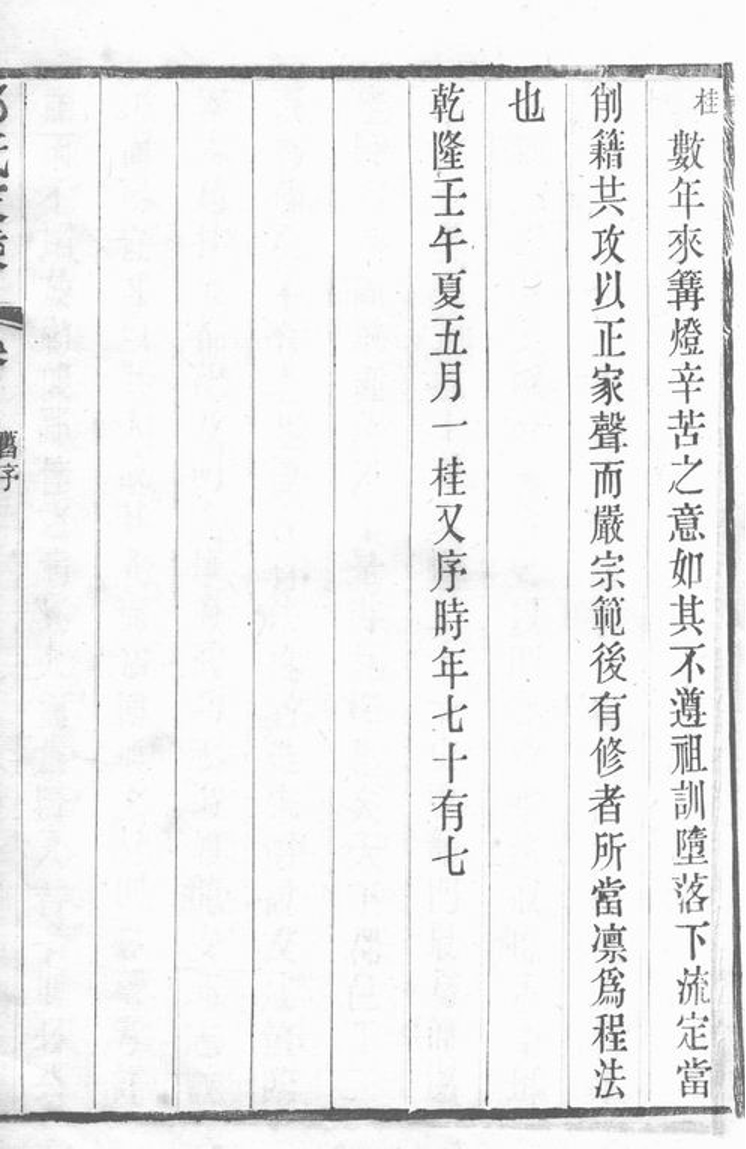 桂數年來篝燈辛苦之意如其不遵祖訓墮落下流定當
削籍共攻以正家聲而嚴宗範後有修者所當凛爲程法
也
乾隆壬午夏五月一桂又序時年七十有七
舊序